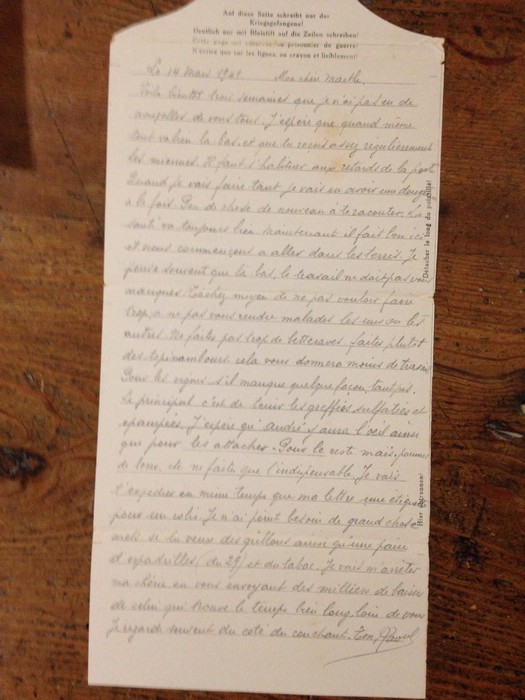 Auf diese Seite schreibt nur der
Kriegsgefangene!
Deutlich nur mit Bleistift auf die Zeilen schreiben!
Cette page est réservée au prisonnier de guerre!
N'écrire que sur les lignes, au crayon et lisiblement!
Le 14 mars 1941 Mon cher
Voila bientôt trois semaines que je n'ai pas eu de
nouvelles de vous tous. J'espère que quand même
tout va bien la bas, et que tu reçois assez régulièrement
les miennes. Il faut s'habituer aux retards de la poste
Quand je vais faire tant je vais en avoir une
à la fois. Peu de chose de nouveau à te raconter. La
santé va toujours bien maintenant il fait bon ici
et nous commençons a aller dans les terres. Je
pense souvent que la bas, le travail ne doit pas vous
manquer. Tachez moyen de ne pas vouloir faire
trop, a ne pas vous rendre malades les uns ou les
autres. Ne faites pas trop de betteraves, faites plutot
des topinambours, cela vous donnera moins de travail
Pour les vignes s'il manque quelque façon, tant pis.
Le principal c'est de tenir les greffées sulfatées et
épamprées. J'espère qu'André y aura l'oeil ainsi
que pour les attacher. Pour le reste mais, pommes
de terre, etc ne faite que l'indispensable. Je vais
t'expedier en meme temps que ma lettre une étiquette
pour un colis. Je n'ai point besoin de grand chose
mets si tu veux des grillons ainsi qu'une paire
d'espadrilles (du 29) et du tabac. Je vais m'arrêter
ma chérie en vous envoyant des milliers de baisers
de celui qui trouve le temps bien long loin de vous
Je regarde souvent du coté du couchant. Ton
Détacher le long du pointillé!
Hier abtrennen!